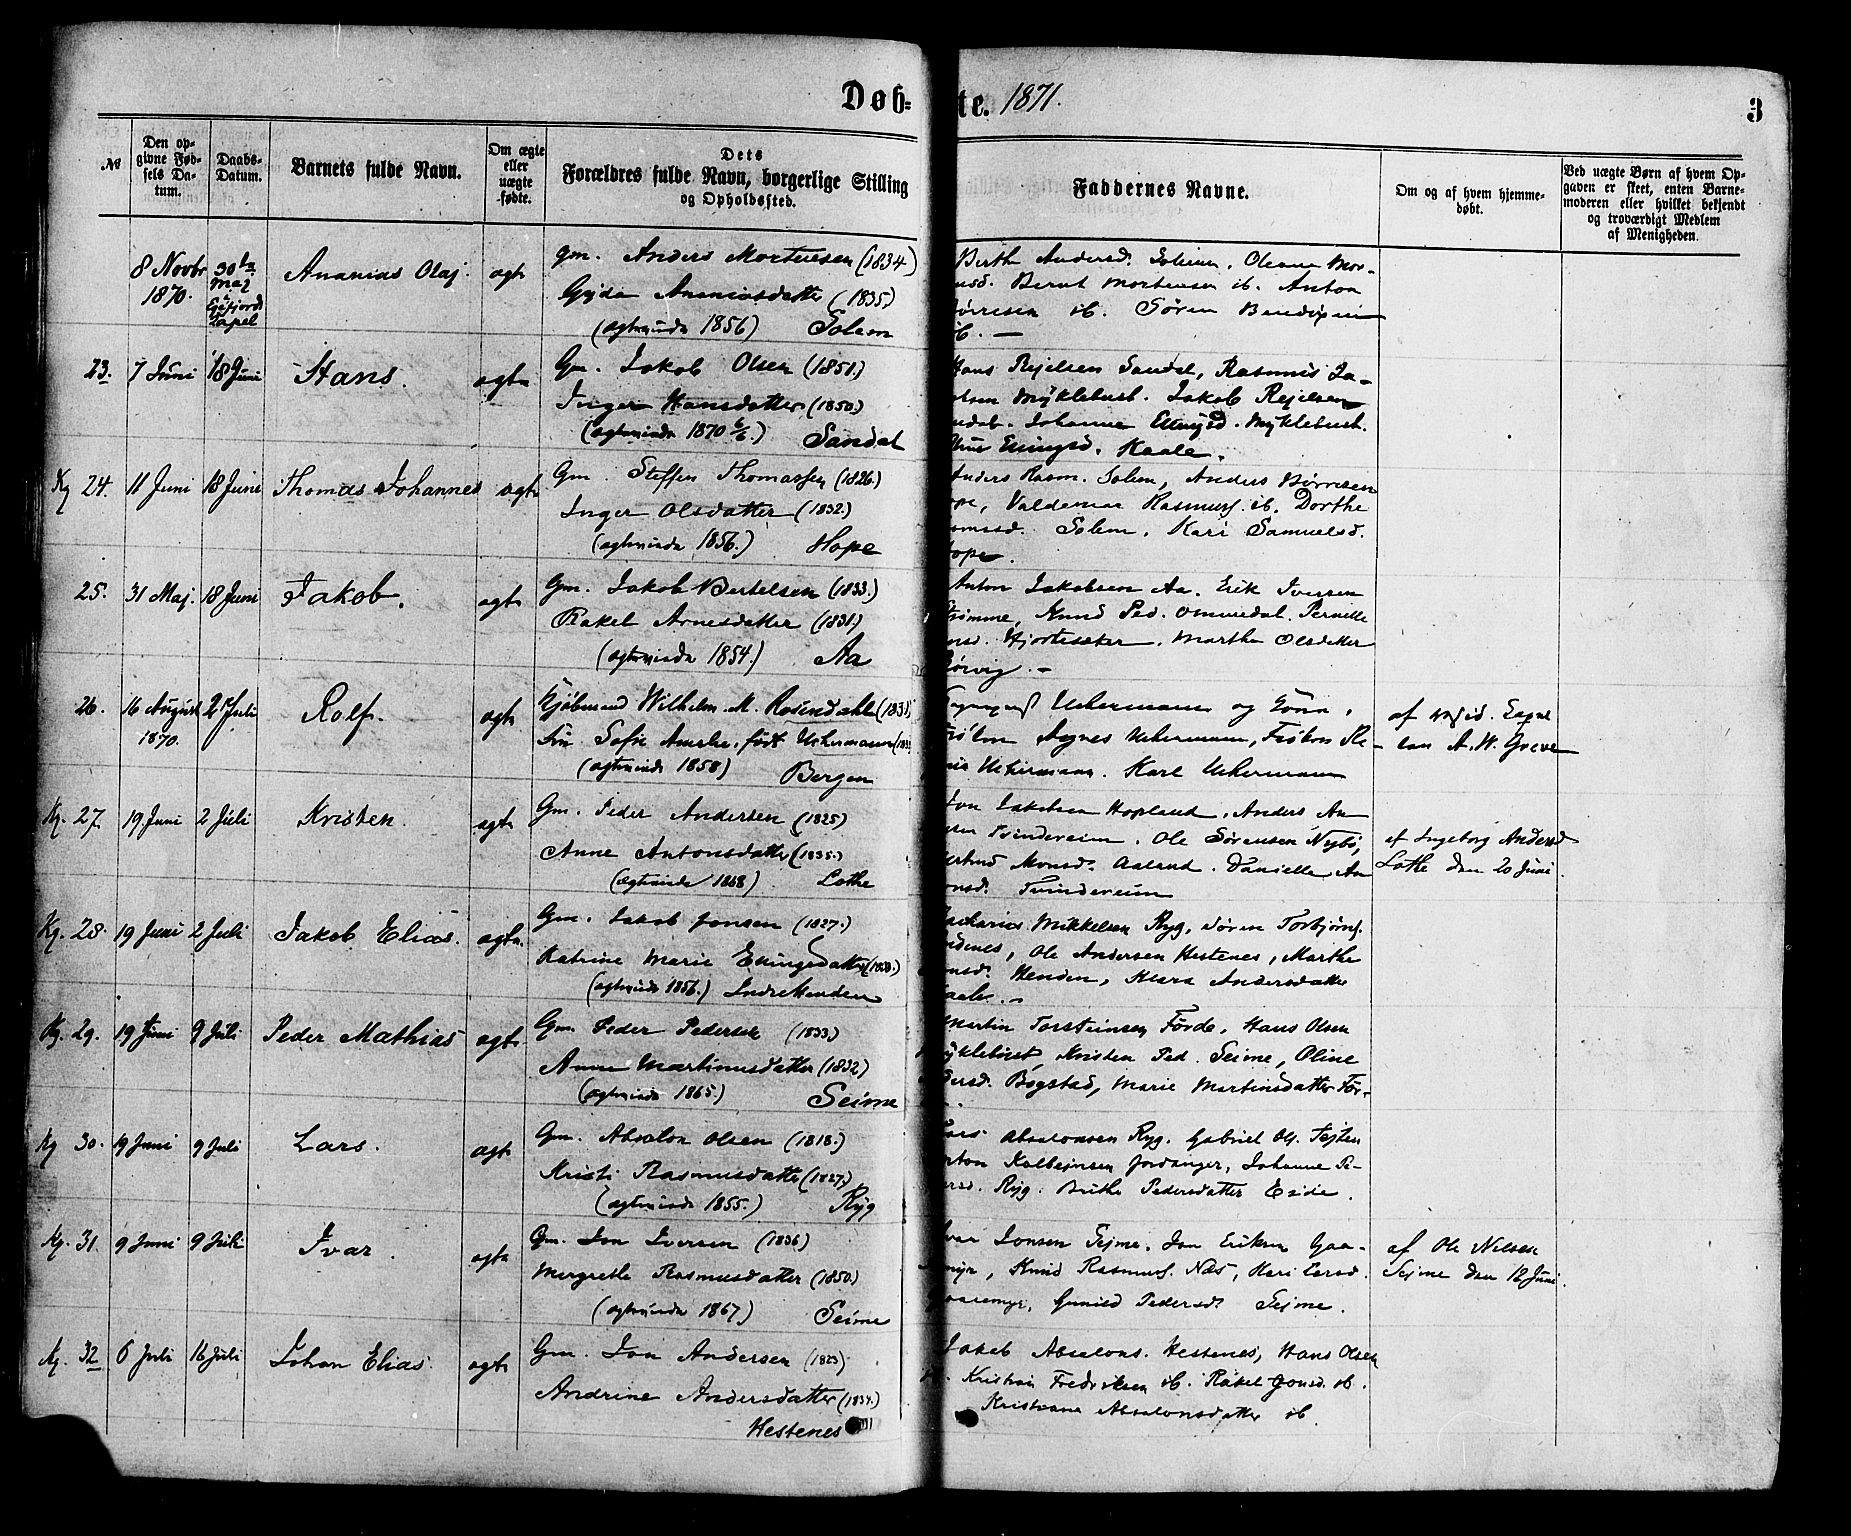 Døb-
te. 1871.
3
№
Den op-
givne Fød-
sels Da-
tum.
Daabs-
Datum.
Barnets fulde Navn.
Om ægte
eller
uægte
fødte.
Dets
Forældres fulde Navn, borgerlige Stilling
og Opholdssted.
Faddernes Navne.
Om og af hvem hjemme-
døbt.
Ved uægte Børn af hvem Op-
gaven er skeet, enten Barne-
moderen eller hvilket bekjendt
og troværdigt Medlem
af Menigheden.
8 Novbr
1870.
30te
Maj
Capel
Ananias Olaj
ægte
Gm. Anders Mortensen (1834)
Gjyda Ananiasdatter (1835)
(ægteviede 1856) Solem
Berthe Andersd. Solem, Oleane Mor-
Bernt Mortensen ib. Anton
ib. Søren Bendixen
ib. —
23. 7 Juni 18 Juni Hans. ægte
Gm. Jakob Olsen (1851.)
Inger Hansdatter (1850.)
(ægteviede 1870 6/6.) Sandal
Hans Rejelsen Sandal, Rasmus Ja-
Myklebust. Jakob Rejelsen
Johanne Ellingsd. Myklebust.
Ellingsd. Kaale.
Kg 24. 11 Juni 18 Juni Thomas Johannes ægte
Gm. Steffen Thomassen (1826.)
Inger Olsdatter (1832.)
(ægteviede 1856.) Hope
Anders Rasm. Solem, Anders Børresen
Valdemar Rasmuss. ib. Dorthe
Solem, Kari Samuelsd.
Hope.
25. 31 Maj. 18 Juni Jakob. ægte
Gm. Jakob Bertelsen (1833.)
Rakel Arnesdatter (1831.)
(ægteviede 1854.) Aa
Anton Jakobsen Aa. Erik Iversen
Strømme, Knud Ped. Ommedal. Pernille
Hjorteseter. Marthe Olsdatter
26. 16 August
1870. 2 Juli Rolf. ægte
Kjøbmand Wilhelm M. Rosendahl (1831)
Sofie Amalie, født Uckermann
(ægteviede 1858) Bergen
Uckermann og Kone,
Frøken Agnes Uckermann, Frøken
Uckermann. Karl Uckermann
af resid. Capel-
lan A. W. Greve
Kg. 27. 19 Juni 2 Juli Kristen. ægte
Gm. Peder Andersen (1825)
Anne Antonsdatter (1835.)
(ægteviede 1868) Lothe
Jakobsen Hopland, Anders An-
Tvindereim, Ole Sørensen Nybø,
Monsd. Aaland. Danielle An-
Tvindereim
af Ingeborg Andersd
Lothe den 20 Juni.
Kg. 28. 19 Juni 2 Juli Jakob Elias. ægte
Gm. Jakob Jonsen (1827.)
Katrine Marie Ellingsdatter
(ægteviede 1856.) Indrehenden
Zacharias Mikkelsen Ryg, Søren Torbjørns.
Ole Andersen Hestenes, Marthe
Henden, Klara Andersdatter
Kaale. —
Kg. 29. 19 Juni 9 Juli Peder Mathias ægte
Gm. Peder Pedersen (1833)
Anne Martinusdatter (1832)
(ægteviede 1865.) Seime
Martin Torsteinsen Førde, Hans Olsen
Myklebust, Kristen Ped. Seime, Oline
Bøgstad, Marie Martinsdatter Før-
Kg 30. 19 Juni 9 Juli Lars. ægte
Gm. Absalon Olsen (1818.)
Kristi Rasmusdatter (1827.)
(ægteviede 1855.) Ryg
Lars Absalonsen Ryg. Gabriel Ols.
Kolbejnsen Jordanger, Johanne Pe-
Ryg. Brithe Pedersdatter Eide.
Kg. 31. 9 Juni 9 Juli Ivar. ægte
Gm. Jon Iversen (1836)
Margrethe Rasmusdatter (1850.)
(ægteviede 1867) Seime
Ivar Jonsen Sejme. Jon Eriksen Gaa-
Knud Rasmuss. Næs, Kari Larsd.
Gunild Pedersd. Sejme.
af Ole Nilsen
Sejme den 12 Juni.
Kg. 32 6 Juli 16 Juli Johan Elias. ægte
Gm. Jon Andersen (1823)
Andrine Andersdatter (1834.)
Hestenes
Jakob Absalons. Hestenes, Hans Olsen
Kristian Fredriksen ib. Rakel Jonsd. ib.
Kristiane Absalonsdatter ib.